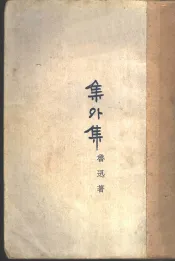 集外集
魯迅著